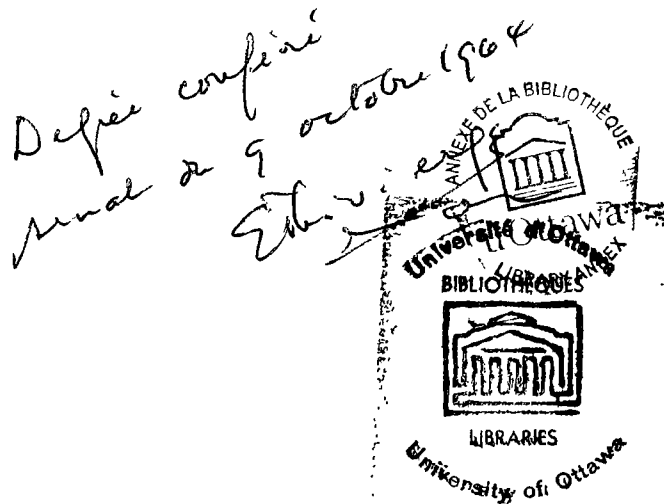 Degrée conféré
Sénat du 9 octobre 1964
ANNEXE DE LA BIBLIOTHÈQUE
uOttawa
LIBRARY ANNEX
Université d'Ottawa
BIBLIOTHÈQUES
LIBRARIES
University of Ottawa